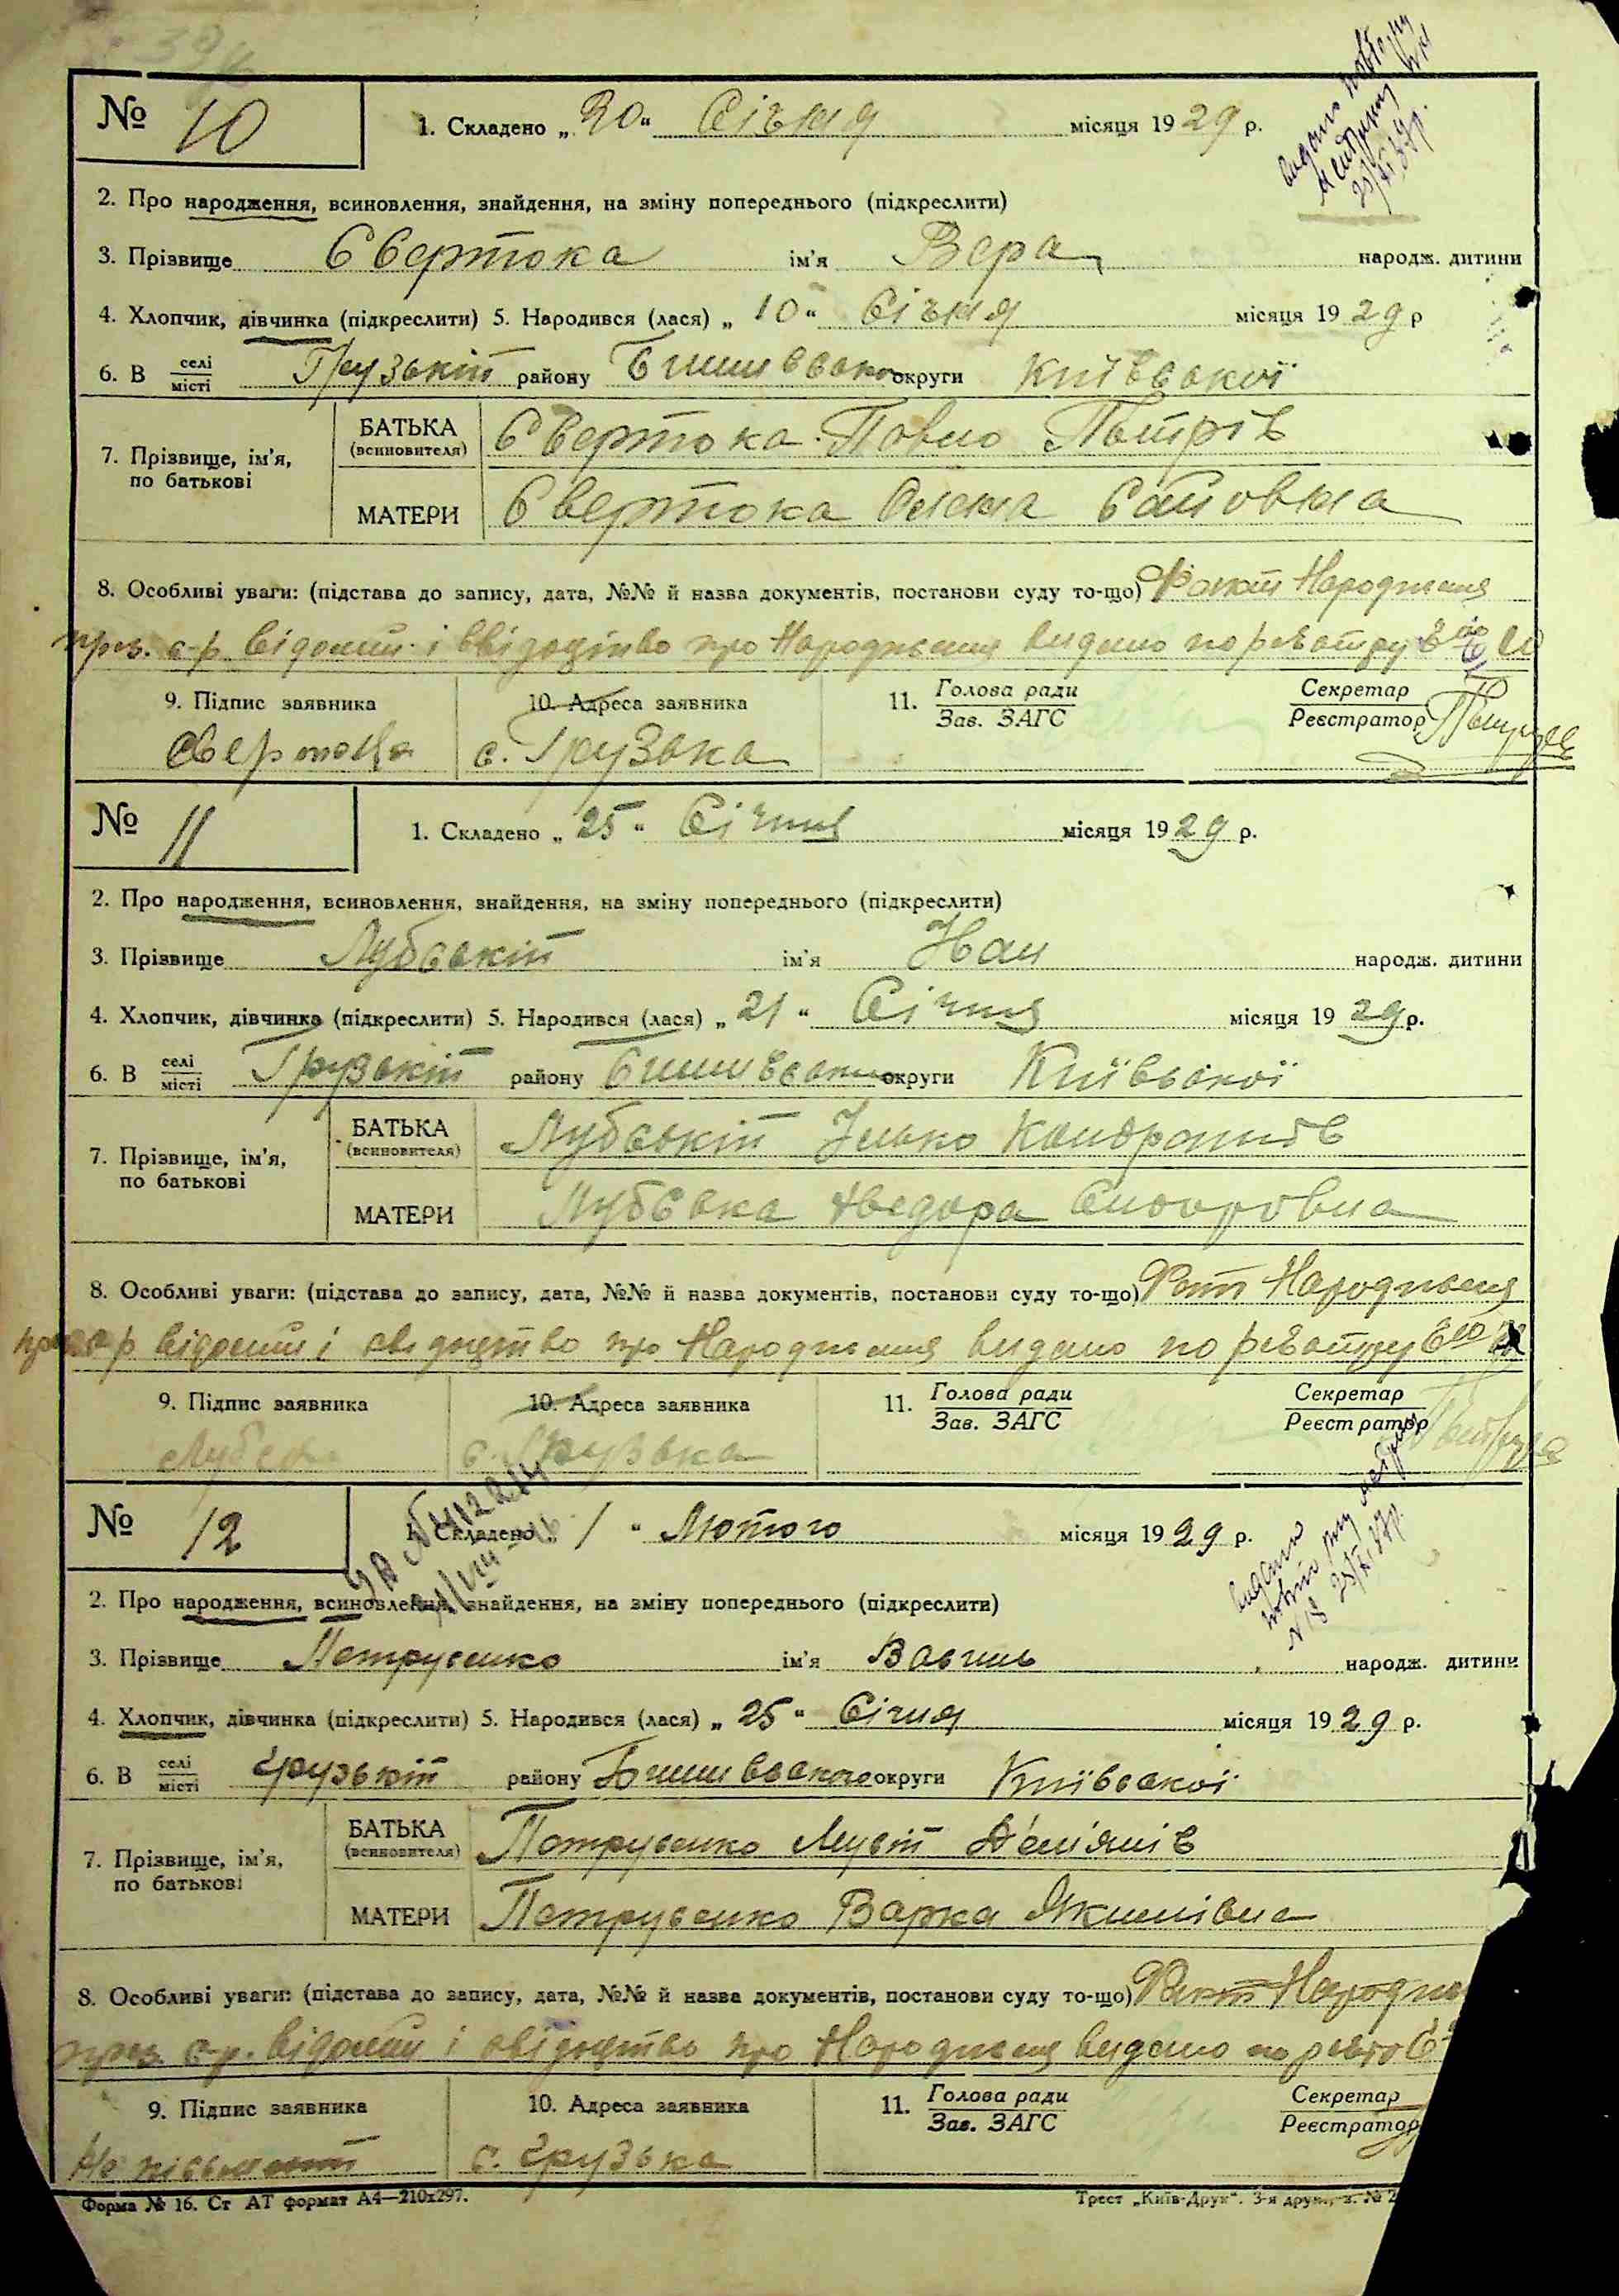 № 10 1. Складено „20“ Січня місяця 1929 р.
2. Про народження, всиновлення, знайдення, на зміну попереднього (підкреслити)
3. Прізвище Євертока ім'я Вера народж. дитини
4. Хлопчик, дівчинка (підкреслити) 5. Народився (лася) „10“ Січня місяця 1929 р
6. В селі/місті Грузькій району округи Київської
7. Прізвище, ім'я, по батькові
БАТЬКА (всиновителя) Євертока Павло Петрів
МАТЕРИ Євертока Олена
8. Особливі уваги: (підстава до запису, дата, №№ й назва документів, постанови суду то-що) Факт Народження
през. с-р. відомий і свідоцтво про Народження видано по
9. Підпис заявника 10. Адреса заявника 11. Голова ради/Зав. ЗАГС Секретар/Реєстратор
с. Грузька
№ 11 1. Складено „25“ Січня місяця 1929 р.
2. Про народження, всиновлення, знайдення, на зміну попереднього (підкреслити)
3. Прізвище Лубський ім'я народж. дитини
4. Хлопчик, дівчинка (підкреслити) 5. Народився (лася) „21“ Січня місяця 1929 р.
6. В селі/місті Грузькій району округи Київської
7. Прізвище, ім'я, по батькові
БАТЬКА (всиновителя) Лубський Ілько Кондратів
МАТЕРИ Лубська Хведора Сидоровна
8. Особливі уваги: (підстава до запису, дата, №№ й назва документів, постанови суду то-що) Факт Народження
през с-р відомий і свідоцтво про Народження видано по
9. Підпис заявника 10. Адреса заявника 11. Голова ради/Зав. ЗАГС Секретар/Реєстратор
с. Грузька
№ 12 1. Складено „1“ Лютого місяця 1929 р.
2. Про народження, всиновлення, знайдення, на зміну попереднього (підкреслити)
3. Прізвище Петрусенко ім'я Василь народж. дитини
4. Хлопчик, дівчинка (підкреслити) 5. Народився (лася) „25“ Січня місяця 1929 р.
6. В селі/місті Грузькій району округи Київської
7. Прізвище, ім'я, по батькові
БАТЬКА (всиновителя) Петрусенко Мусій Дем'янів
МАТЕРИ Петрусенко Варка Якимівна
8. Особливі уваги: (підстава до запису, дата, №№ й назва документів, постанови суду то-що) Факт
през. с-р. відомий і свідоцтво про Народження видано по
9. Підпис заявника 10. Адреса заявника 11. Голова ради/Зав. ЗАГС Секретар/Реєстратор
с. Грузька
Форма № 16. Ст АТ формат А4—210х297. Трест „Київ-Друк“. 3-я